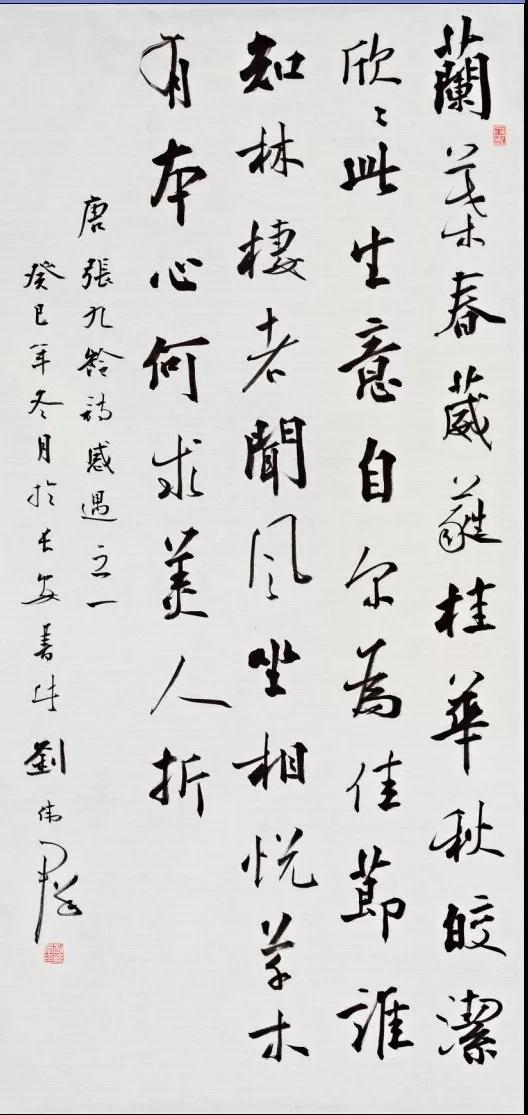 蘭葉春葳蕤桂華秋皎潔
欣々此生意自尔為佳節誰
知林棲者聞風坐相悅草木
有本心何求美人折
唐張九齡詩感遇之一
癸巳年冬月於長安書 劉偉